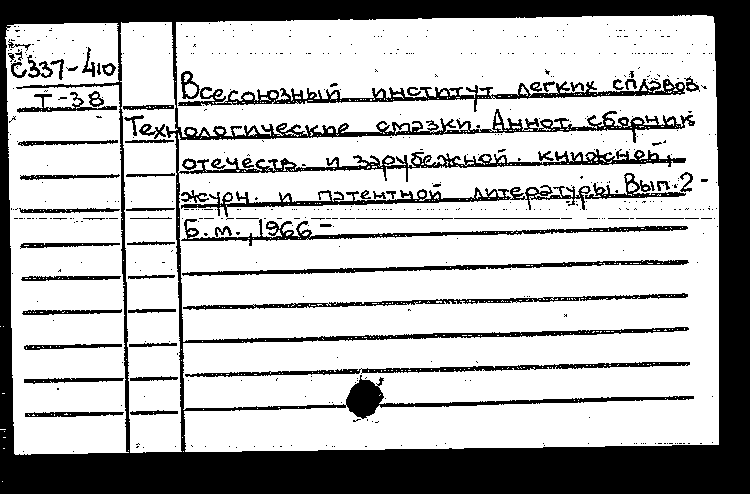 С337-410
Т-38
Всесоюзный институт легких сплавов.
Технологические смазки. Аннот. сборник
отечеств. и зарубежной. книжной,
журн. и патентной литературы. Вып.2-
Б.м., 1966-